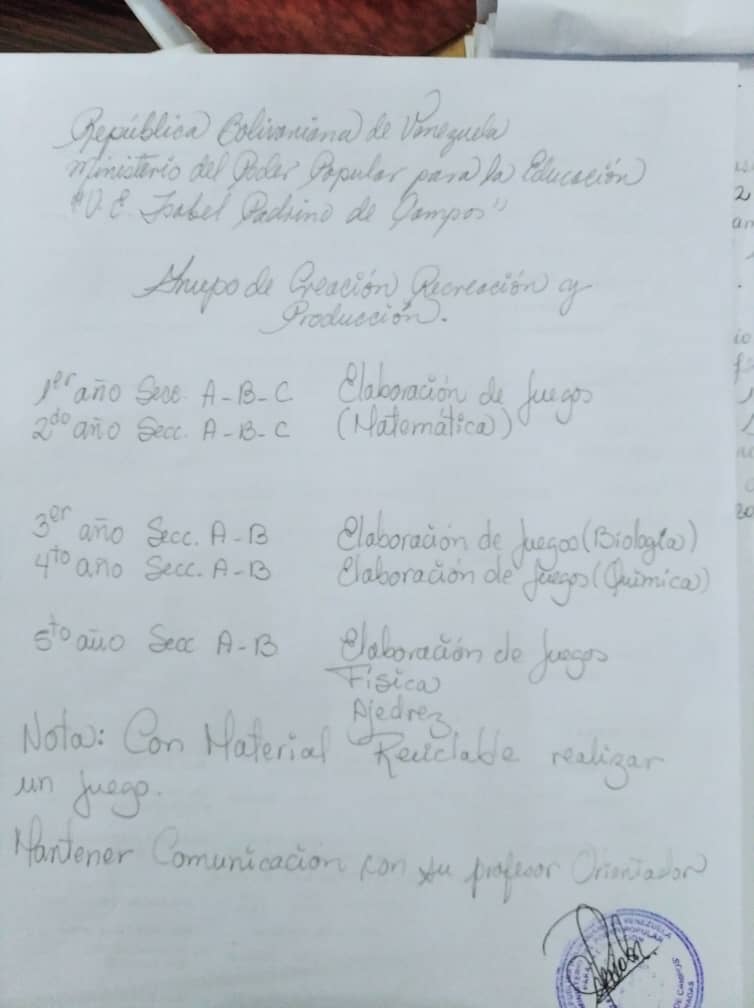 República Bolivariana de Venezuela
Ministerio del Poder Popular para la Educación
"U.E. Isabel Padrino de Campos"
Grupo de Creación Recreación y
Producción.
1er año Secc. A-B-C Elaboración de Juegos
2do año Secc. A-B-C (Matemática)
3er año Secc. A-B Elaboración de Juegos (Biología)
4to año Secc. A-B Elaboración de Juegos (Química)
5to año Secc A-B Elaboración de Juegos
Física
Ajedrez
Nota: Con Material Reciclable realizar
un juego.
Mantener Comunicación con su profesor Orientador
VENEZUELA
POPULAR
DE CAMPOS